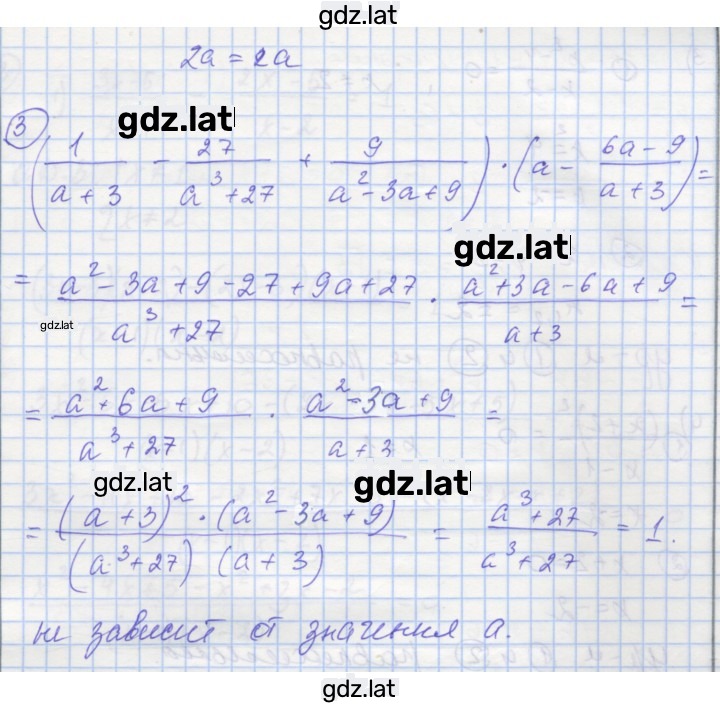 gdz.lat
2a = 2a
gdz.lat
③ (1/(a + 3) - 27/(a³ + 27) + 9/(a² - 3a + 9)) · (a - (6a - 9)/(a + 3)) =
gdz.lat
= (a² - 3a + 9 - 27 + 9a + 27)/(a³ + 27) · (a² + 3a - 6a + 9)/(a + 3) =
gdz.lat
= (a² + 6a + 9)/(a³ + 27) · (a² - 3a + 9)/(a + 3) =
gdz.lat gdz.lat
= ((a + 3)² · (a² - 3a + 9))/((a³ + 27) (a + 3)) = (a³ + 27)/(a³ + 27) = 1.
не зависит от значения a.
gdz.lat